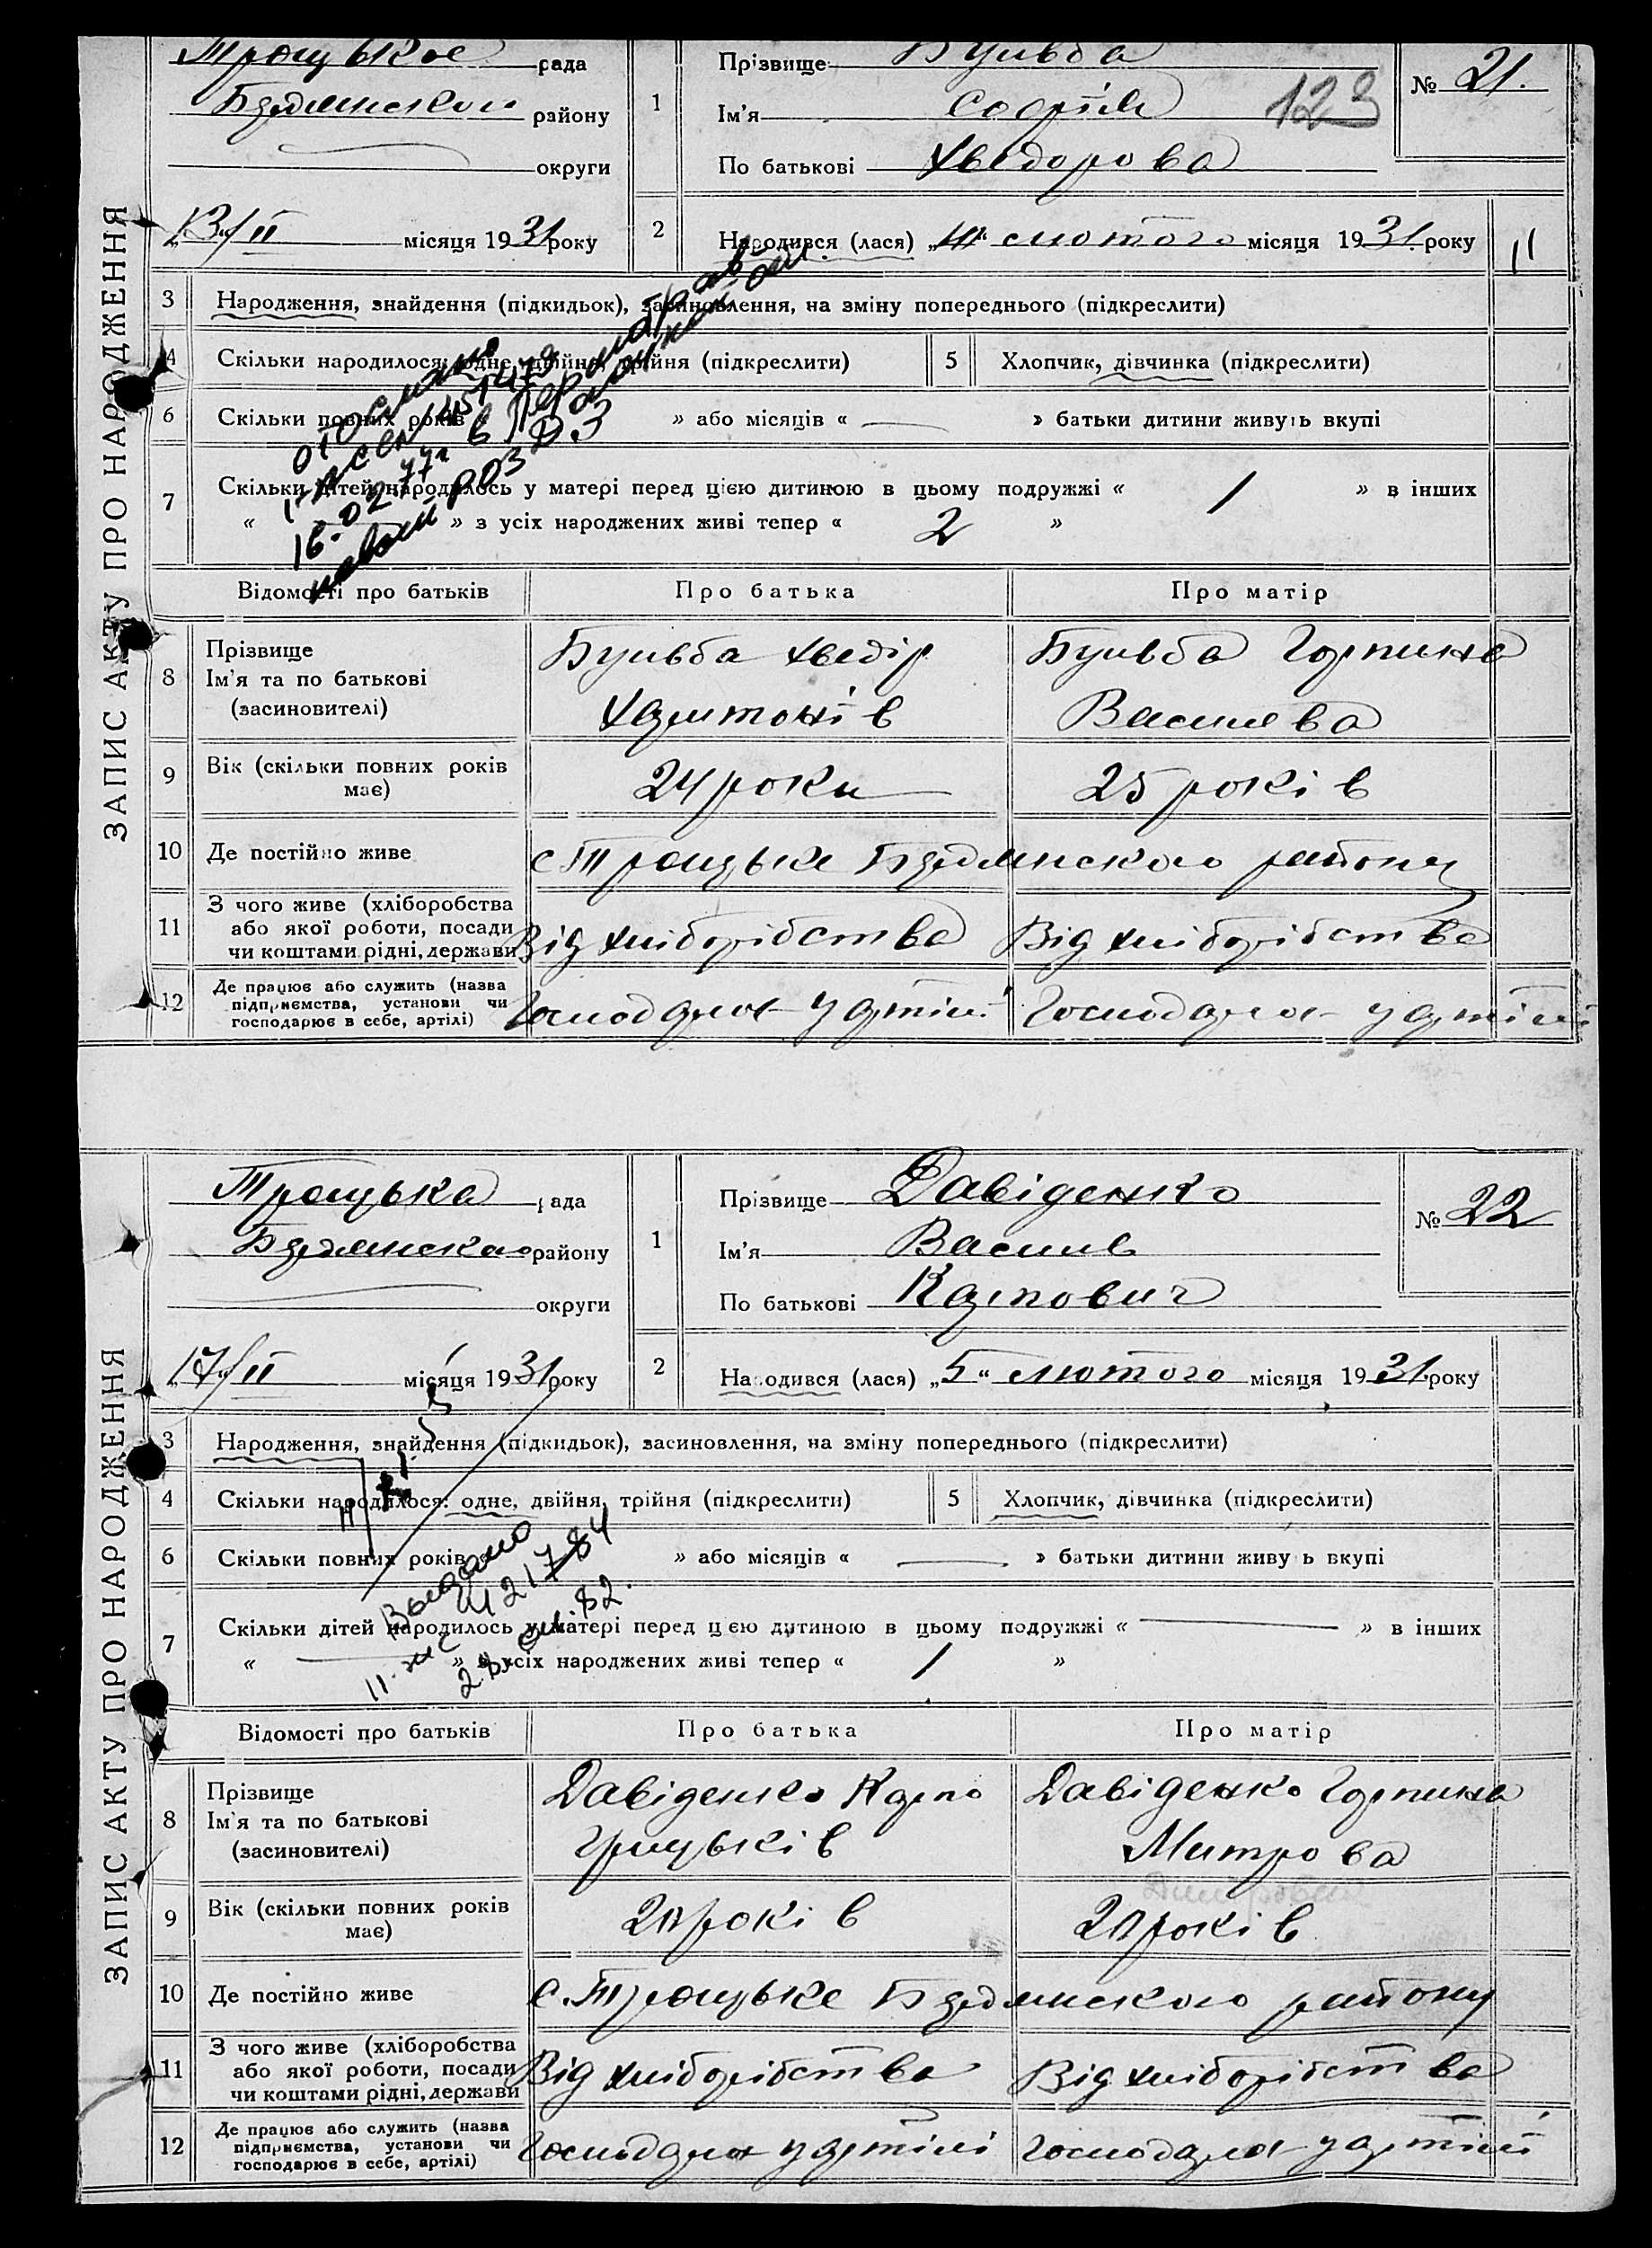 Троцькое рада
Бердянского району
округи
1
Прізвище Бульба
Ім'я Софія
По батькові Хведорова
№ 21.
123
„13“/II місяця 1931 року
2
Народився (лася) „11“ лютого місяця 1931 року
11
ЗАПИС АКТУ ПРО НАРОДЖЕННЯ
3 Народження, знайдення (підкидьок), засиновлення, на зміну попереднього (підкреслити)
4 Скільки народилося: одне, двійня, трійня (підкреслити)
5 Хлопчик, дівчинка (підкреслити)
6 Скільки повних років » або місяців « — » батьки дитини живуть вкупі
7 Скільки дітей народилось у матері перед цією дитиною в цьому подружжі « 1 » в інших
« » з усіх народжених живі тепер « 2 »
Відомості про батьків Про батька Про матір
8 Прізвище
Ім'я та по батькові
(засиновителі)
Бульба Хведір
Харитонів
Бульба Горпина
Васильева
9 Вік (скільки повних років
має)
24 роки
25 років
10 Де постійно живе
с Троцьке Бердянского району
11 З чого живе (хліборобства
або якої роботи, посади
чи коштами рідні, держави
Від хліборібства
Від хліборібства
12 Де працює або служить (назва
підприємства, установи чи
господарює в себе, артілі)
Господарює у артілі
Господарює у артілі
Троцька рада
Бердянскаго району
округи
1
Прізвище Давіденко
Ім'я Василь
По батькові Карпович
№ 22
„17“/II місяця 1931 року
2
Народився (лася) „5“ лютого місяця 1931 року
ЗАПИС АКТУ ПРО НАРОДЖЕННЯ
3 Народження, знайдення (підкидьок), засиновлення, на зміну попереднього (підкреслити)
4 Скільки народилося: одне, двійня, трійня (підкреслити)
5 Хлопчик, дівчинка (підкреслити)
6 Скільки повних років » або місяців « — » батьки дитини живуть вкупі
Выдано
7 Скільки дітей народилось у матері перед цією дитиною в цьому подружжі « — » в інших
« — » з усіх народжених живі тепер « 1 »
Відомості про батьків Про батька Про матір
8 Прізвище
Ім'я та по батькові
(засиновителі)
Давіденко Карпо
Грицьків
Давіденко Горпина
Митрова
9 Вік (скільки повних років
має)
років
років
10 Де постійно живе
с. Троцьке Бердянского району
11 З чого живе (хліборобства
або якої роботи, посади
чи коштами рідні, держави
Від хліборібства
Від хліборібства
12 Де працює або служить (назва
підприємства, установи чи
господарює в себе, артілі)
Господарює у артілі
Господарює у артілі